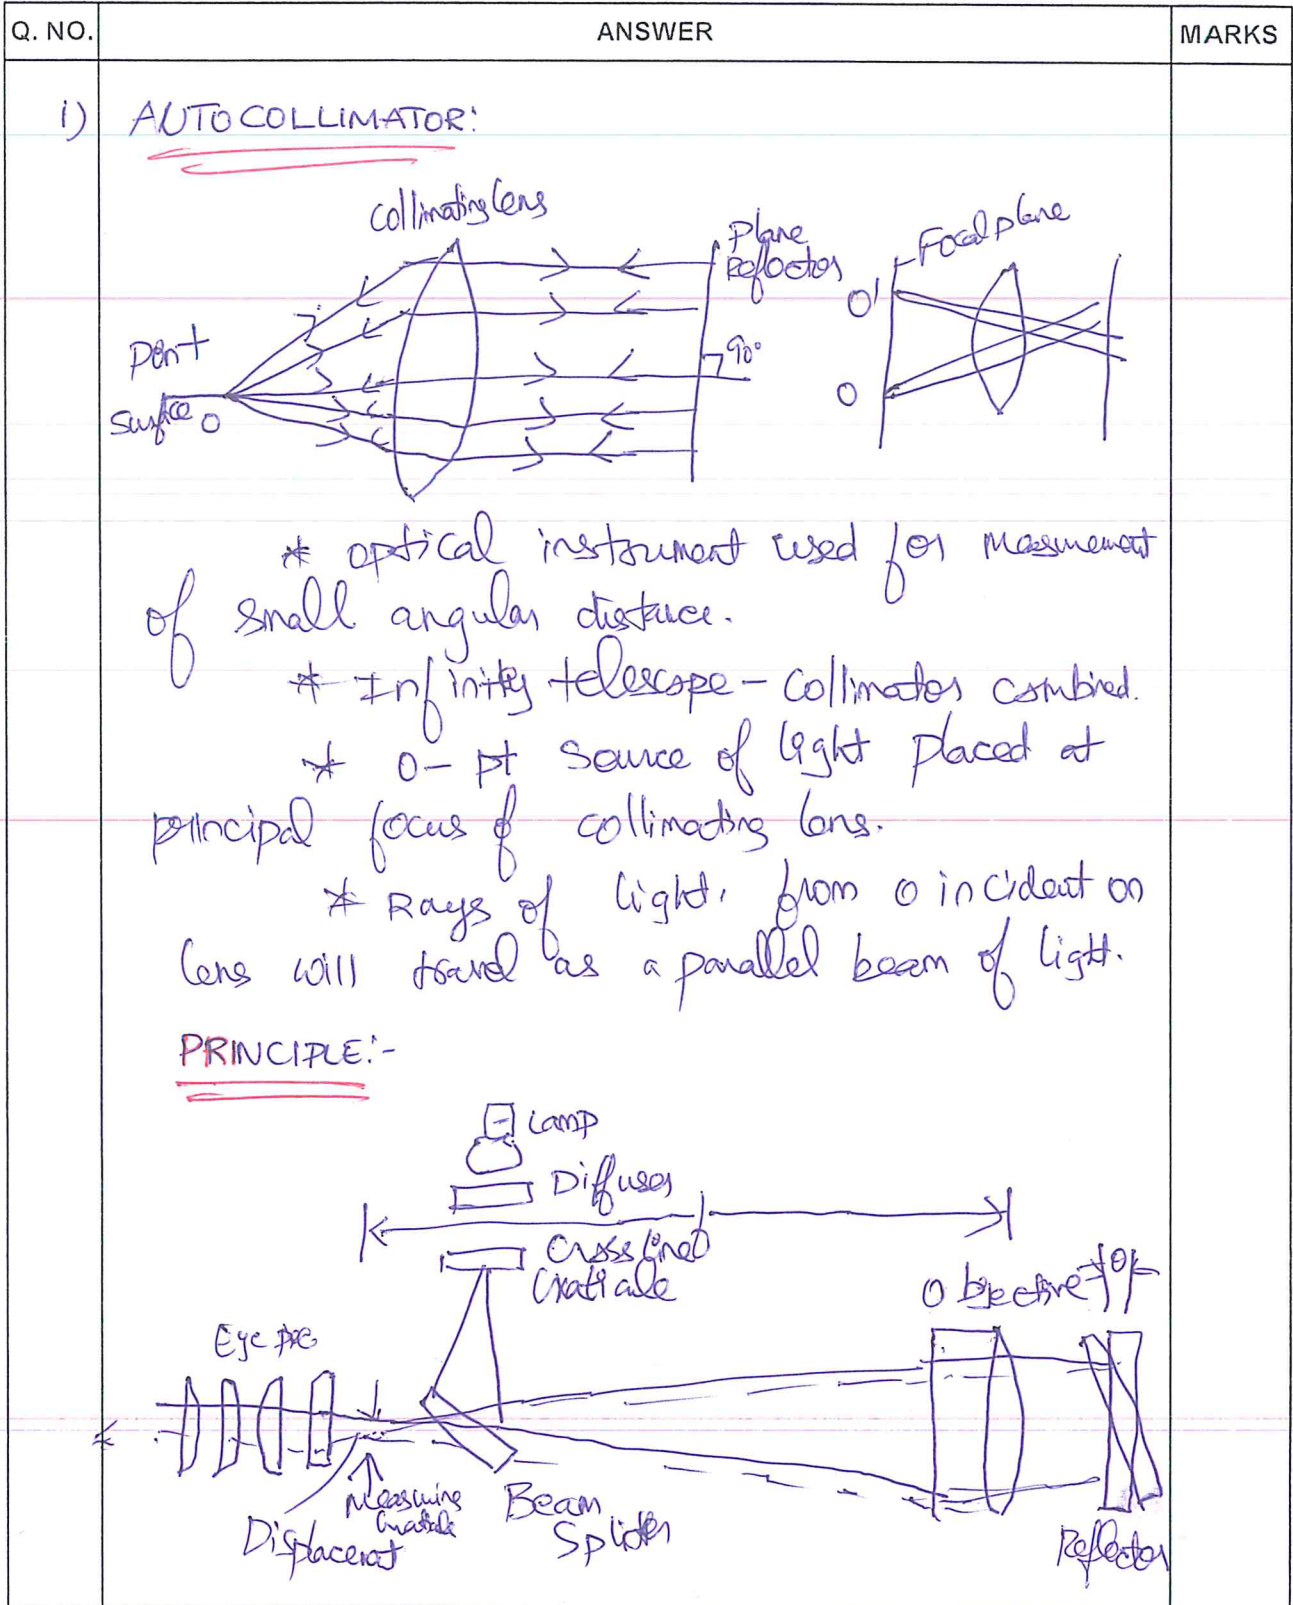 Q. NO. ANSWER MARKS
i) AUTOCOLLIMATOR:
Collimating lens
Plane
Reflector
Focal plane
O'
90°
Point
O
O
* optical instrument used for measurement
of small angular distance.
* Infinity telescope - collimator combined.
* O - pt source of light placed at
principal focus of collimating lens.
* Rays of light, from O incident on
lens will travel as a parallel beam of light.
PRINCIPLE:-
Lamp
Diffuser
f
Cross line
Objective
θ
Eye
Measuring
Beam
Splitter
Reflector